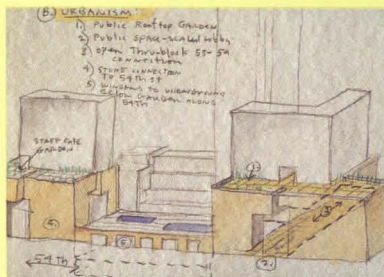 (B.) URBANISM:
1) Public Rooftop GARDEN
2) Public space-scaled lobby
3) open Thru-block 53-54
CONNECTION
4) STORE CONNECTION
TO 54TH ST
5) WINDOWS TO UNDERGROUND
BELOW GARDEN ALONG
54TH
STAFF CAFE
GARDEN
1.)
3.)
4.)
5.)
2.)
54TH